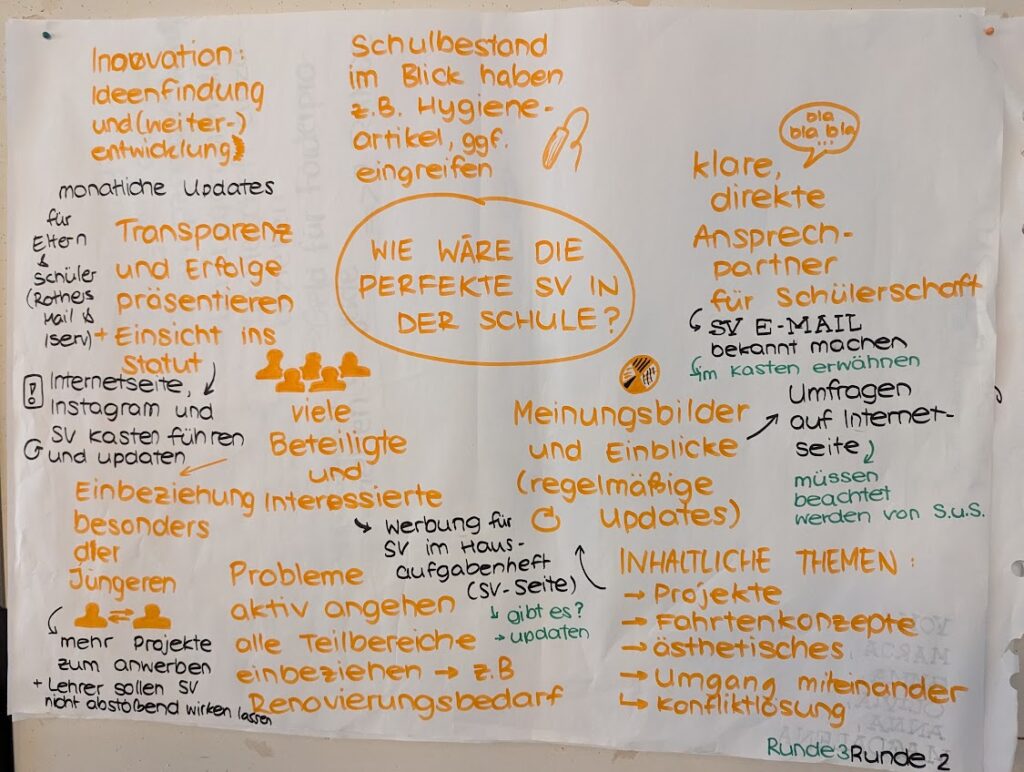 Inovation:
Ideenfindung
und (weiter-)
entwicklung)
Schulbestand
im Blick haben
z.B. Hygiene-
artikel, ggf.
eingreifen
bla
bla bla
...
klare,
direkte
Ansprech-
partner
für Schülerschaft
SV E-MAIL
bekannt machen
im Kasten erwähnen
WIE WÄRE DIE
PERFEKTE SV IN
DER SCHULE?
monatliche Updates
für
Eltern
&
Schüler
(Rothers
Mail &
iserv)
Transparenz
und Erfolge
präsentieren
+ Einsicht ins
Statut
Internetseite,
Instagram und
SV Kasten führen
und updaten
viele
Beteiligte
und
Interessierte
→ Werbung für
SV im Haus-
aufgabenheft
(SV-Seite)
↳ gibt es?
→ updaten
Meinungsbilder
und Einblicke
(regelmäßige
updates)
Umfragen
auf Internet-
seite
müssen
beachtet
werden von S.u.S.
Einbeziehung
besonders
der
Jüngeren
mehr Projekte
zum anwerben
+ Lehrer sollen SV
nicht abstoßend wirken lassen
Probleme
aktiv angehen
alle Teilbereiche
einbeziehen → z.B
Renovierungsbedarf
INHALTLICHE THEMEN:
→ Projekte
→ Fahrtenkonzepte
→ ästhetisches
→ Umgang miteinander
↳ Konfliktlösung
Runde 3 Runde 2